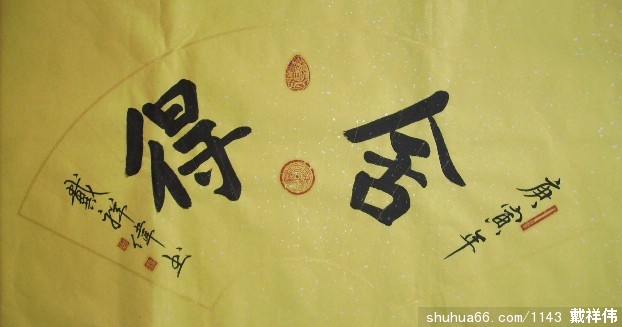 庚寅年
舍得
戴祥偉书
shuhua66.com/1143 戴祥伟